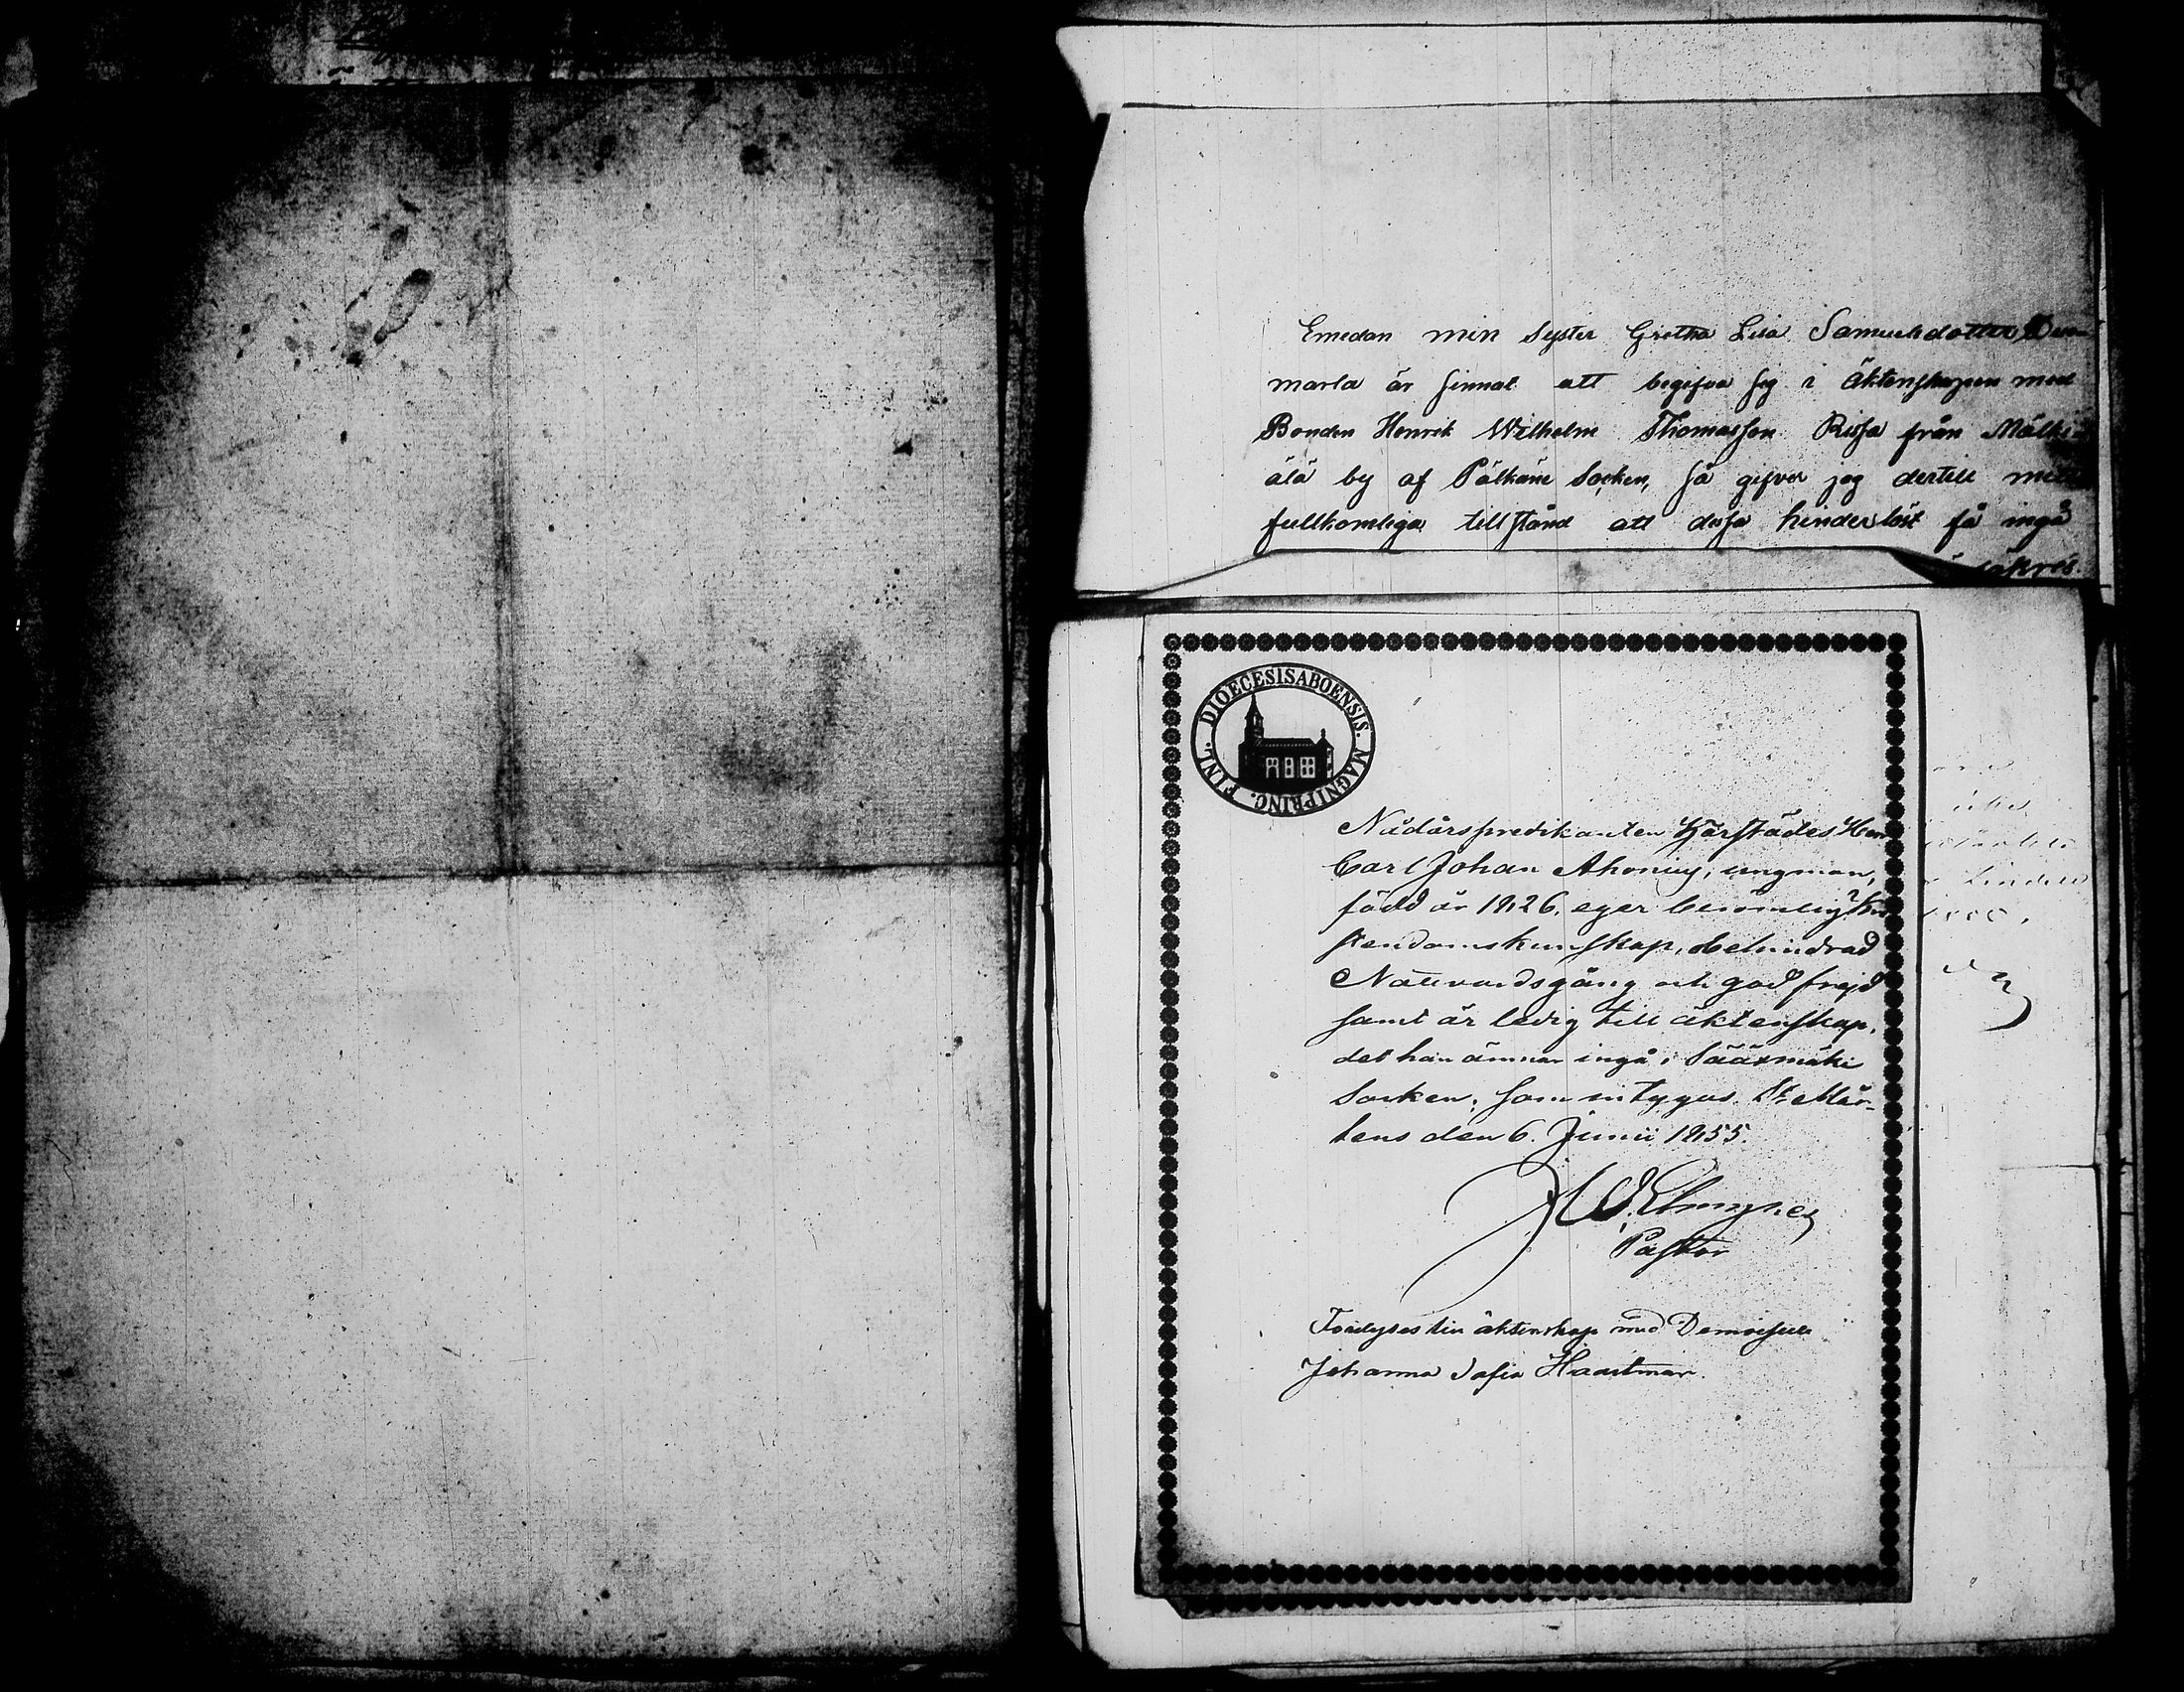 Emedan min Syster Gretha Lisa Samuelsdotter
marla är sinnat att begifva sig i Äktenskapen med
Bonden Henrik Wilhelm Thomasson Rissa från Mälki
älä by af Pälkäne Socken, så gifver jag dertill mitt
fullkomliga tillstånd att dessa hinderlöst få ingå
DIOECESIS ABOENSIS. MAGNI PRINC. FINL.
Nådårspredikanten härstädes Herr
Carl Johan Ahonius, ungman,
född år 1826, eger berömlig Kri
stendomskunskap, obehindrad
Nattvardsgång och god frejd
samt är ledig till äktenskap,
det han ämnar ingå i Sääxmäki
Socken; som intygas. St Mår-
tens den 6. Junii 1855.
Pastor
Fordyses äktenskap med Demoiselle
Johanna Sofia Haartman.